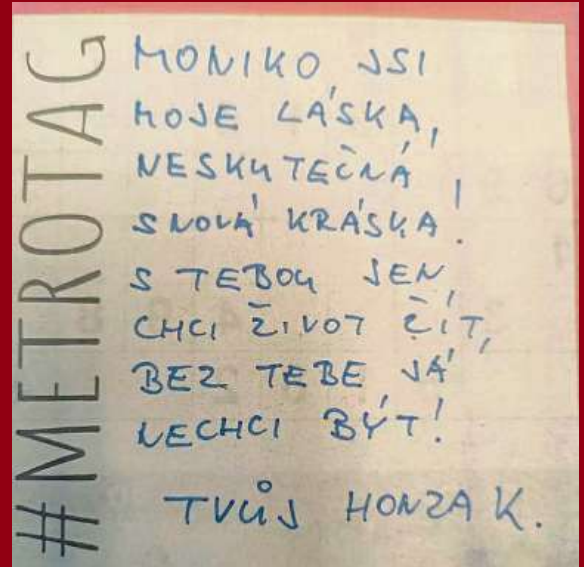 #METROTAG
MONIKO, JSI
MOJE LÁSKA,
NESKUTEČNÁ,
SNOVÁ KRÁSKA!
S TEBOU JEN,
CHCI ŽIVOT ŽÍT,
BEZ TEBE JÁ
NECHCI BÝT!
TVŮJ HONZA K.